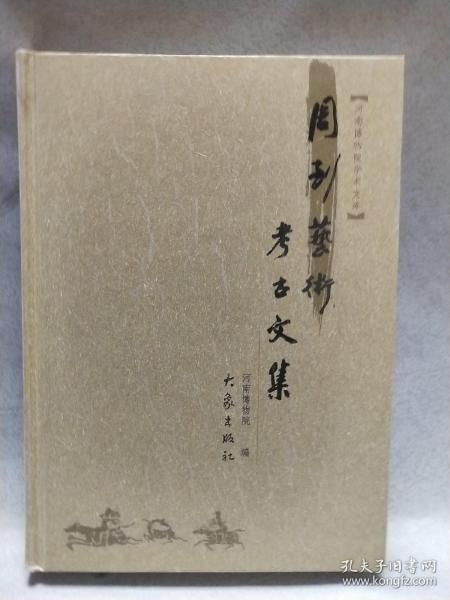 【河南博物院学术文库】
周到藝術
考古文集
河南博物院 编
大象出版社
孔夫子旧书网
www.kongfz.com